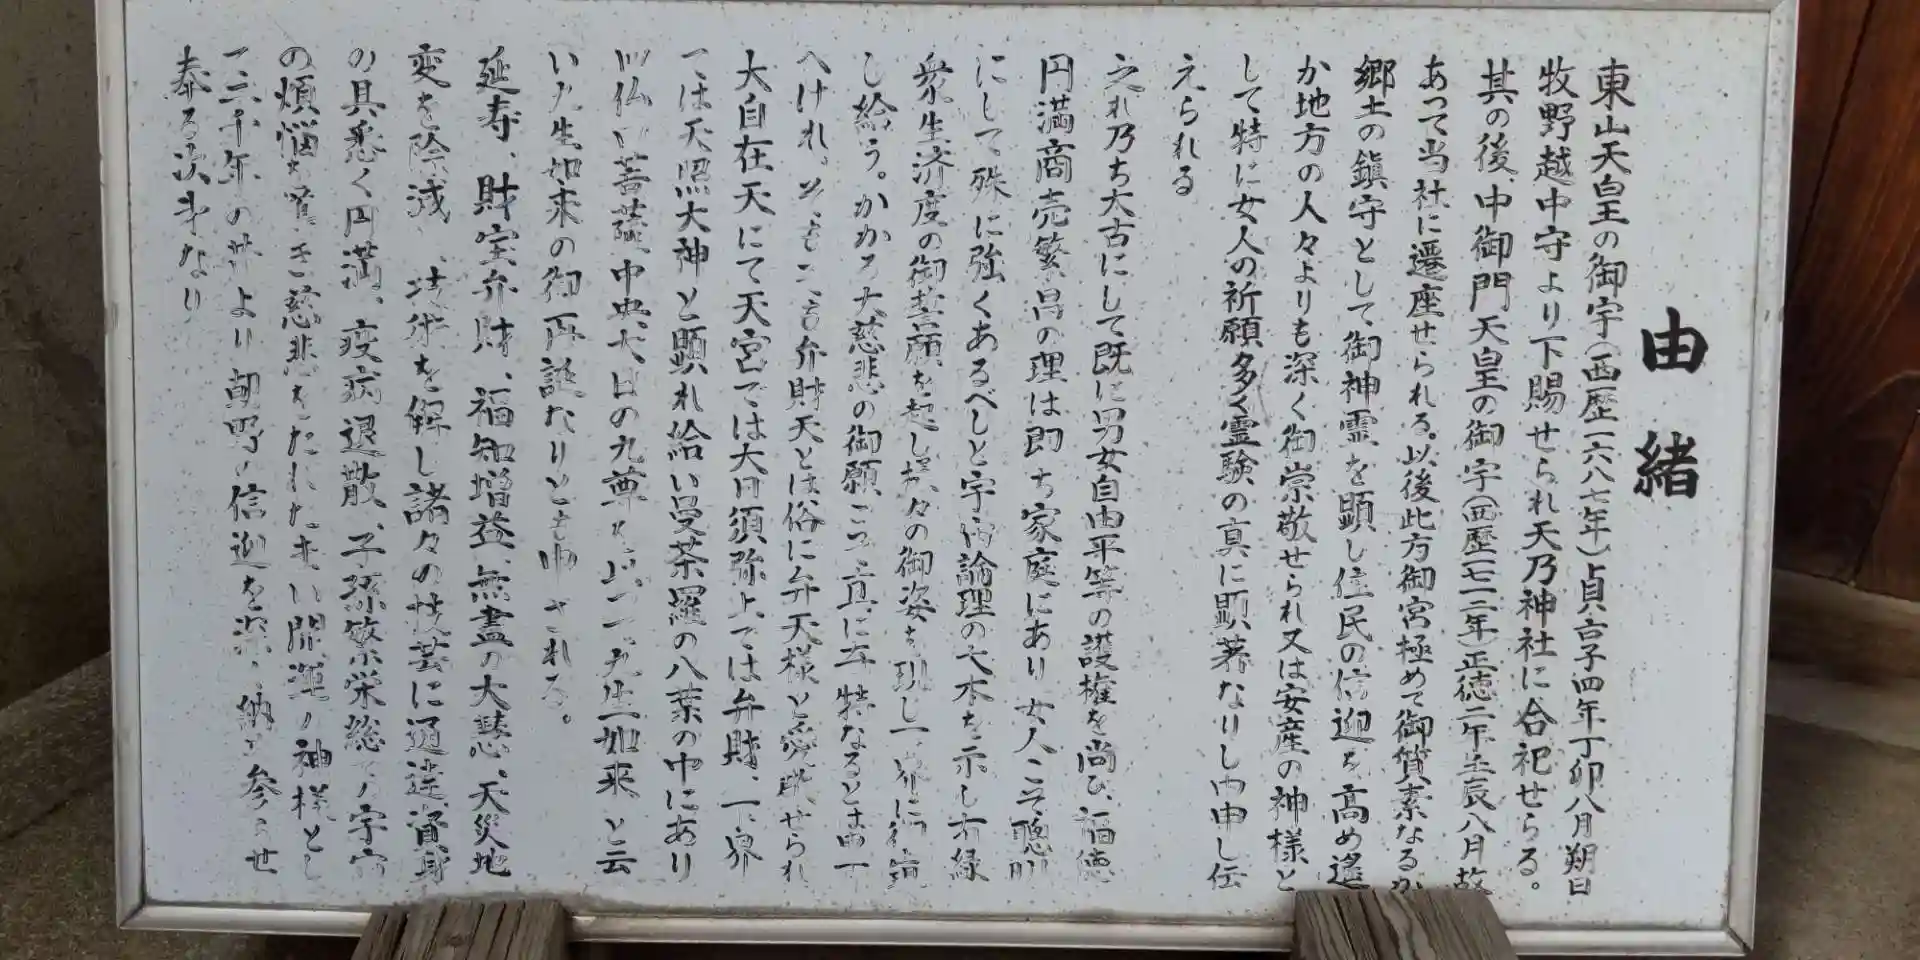 由緒
東山天皇の御宇(西歴一六八七年)貞享子四年丁卯八月朔日
牧野越中守より下賜せられ天乃神社に合祀せらる。
其の後、中御門天皇の御宇(西歴一七一二年)正徳二年壬辰八月故
あって当社に遷座せられる。以後此方御宮極めて御質素なるか
郷土の鎮守として、御神霊を顕し住民の信迎を高め遙
か地方の人々よりも深く御崇敬せられ又は安産の神様と
して特に女人の祈願多く霊験の真に顕著なりし由申し伝
えられる
之れ乃ち大古にして既に男女自由平等の護権を尚ひ、福徳
円満商売繁昌の理は即ち家庭にあり女人こそ聰明
にして殊に強くあるべしと宇宙論理の大本を示し有縁
衆生済度の御誓願を起し様々の御姿を現し
し給う。かかる大慈悲の御願こそ真に
へけれ。弁財天とは俗に弁天様と愛称せられ
大自在天にて天宮では大日須弥上では弁財、下界
ては天照大神と顕れ給い曼荼羅の八葉の中にあり
四仏四菩薩中央大日の九尊を 九生如来と云
い九生如来の御再誕なりとも申される。
延寿、財宝弁財、福知増益、無盡の大慧、天災地
変を除滅 技術を解し諸々の技芸に通達、資身
の具悉く円満、疫病退散、子孫繁栄総て
の煩悩を 慈悲をたれたまい開運の神様とし
て三千年の昔より朝野の信迎を深く納め参らせ
奉る次第なり